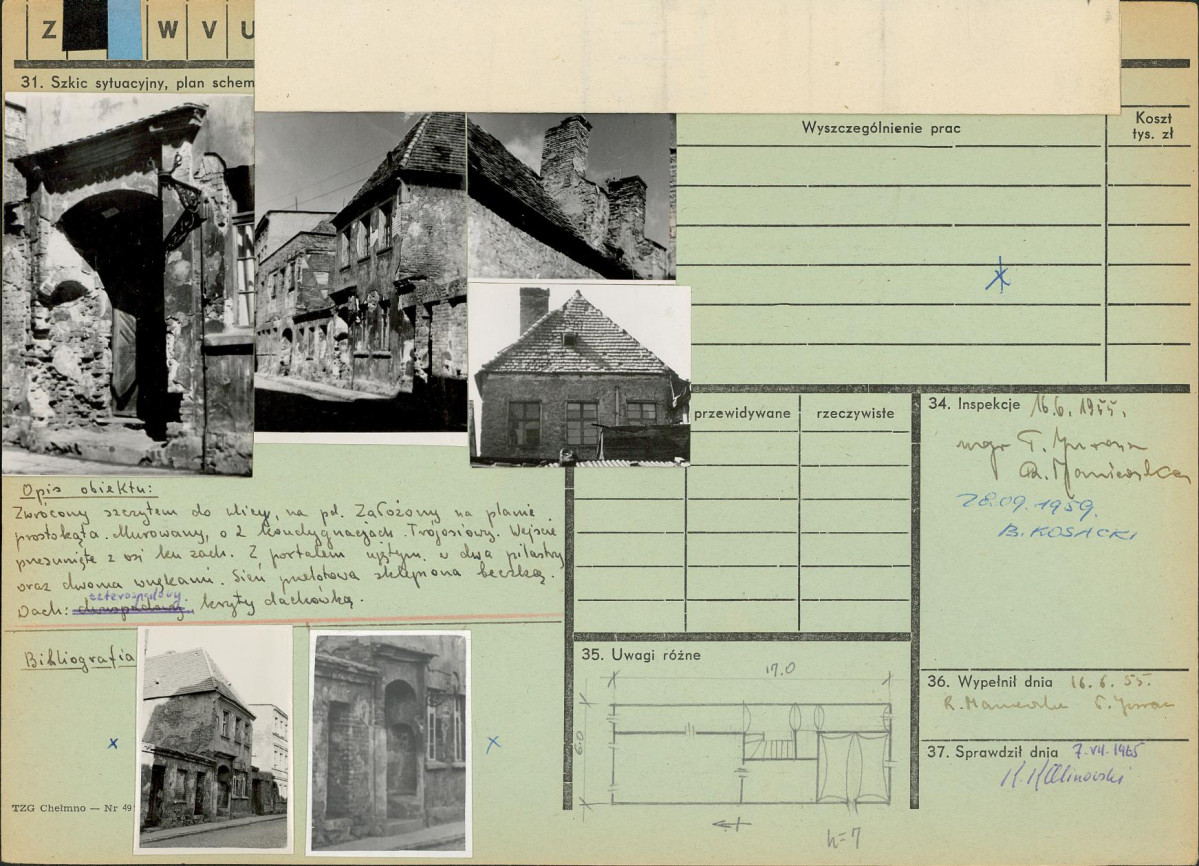 Z W V U
31. Szkic sytuacyjny, plan schem
Wyszczególnienie prac
Koszt
tys. zł
przewidywane
rzeczywiste
34. Inspekcje 16.6.1955.
mgr T.
R.
28.09.1959.
B. KOSACKI
Opis obiektu:
Zwrócony szczytem do ulicy, na pd. Założony na planie
prostokąta. Murowany, o 2 kondygnacjach. Trójosiowy. Wejście
przesunięte z osi ku zach. Z portalem ujętym w dwa pilastry
oraz dwoma wnękami. Sień przelotowa sklepiona beczką.
czterospadowy
Dach: dwuspadowy kryty dachówką.
Bibliografia
x
x
TZG Chełmno — Nr 49
35. Uwagi różne
17.0
6.0
h=7
36. Wypełnił dnia 16.6.55.
37. Sprawdził dnia 7.VII.1965
K. Kalinowski